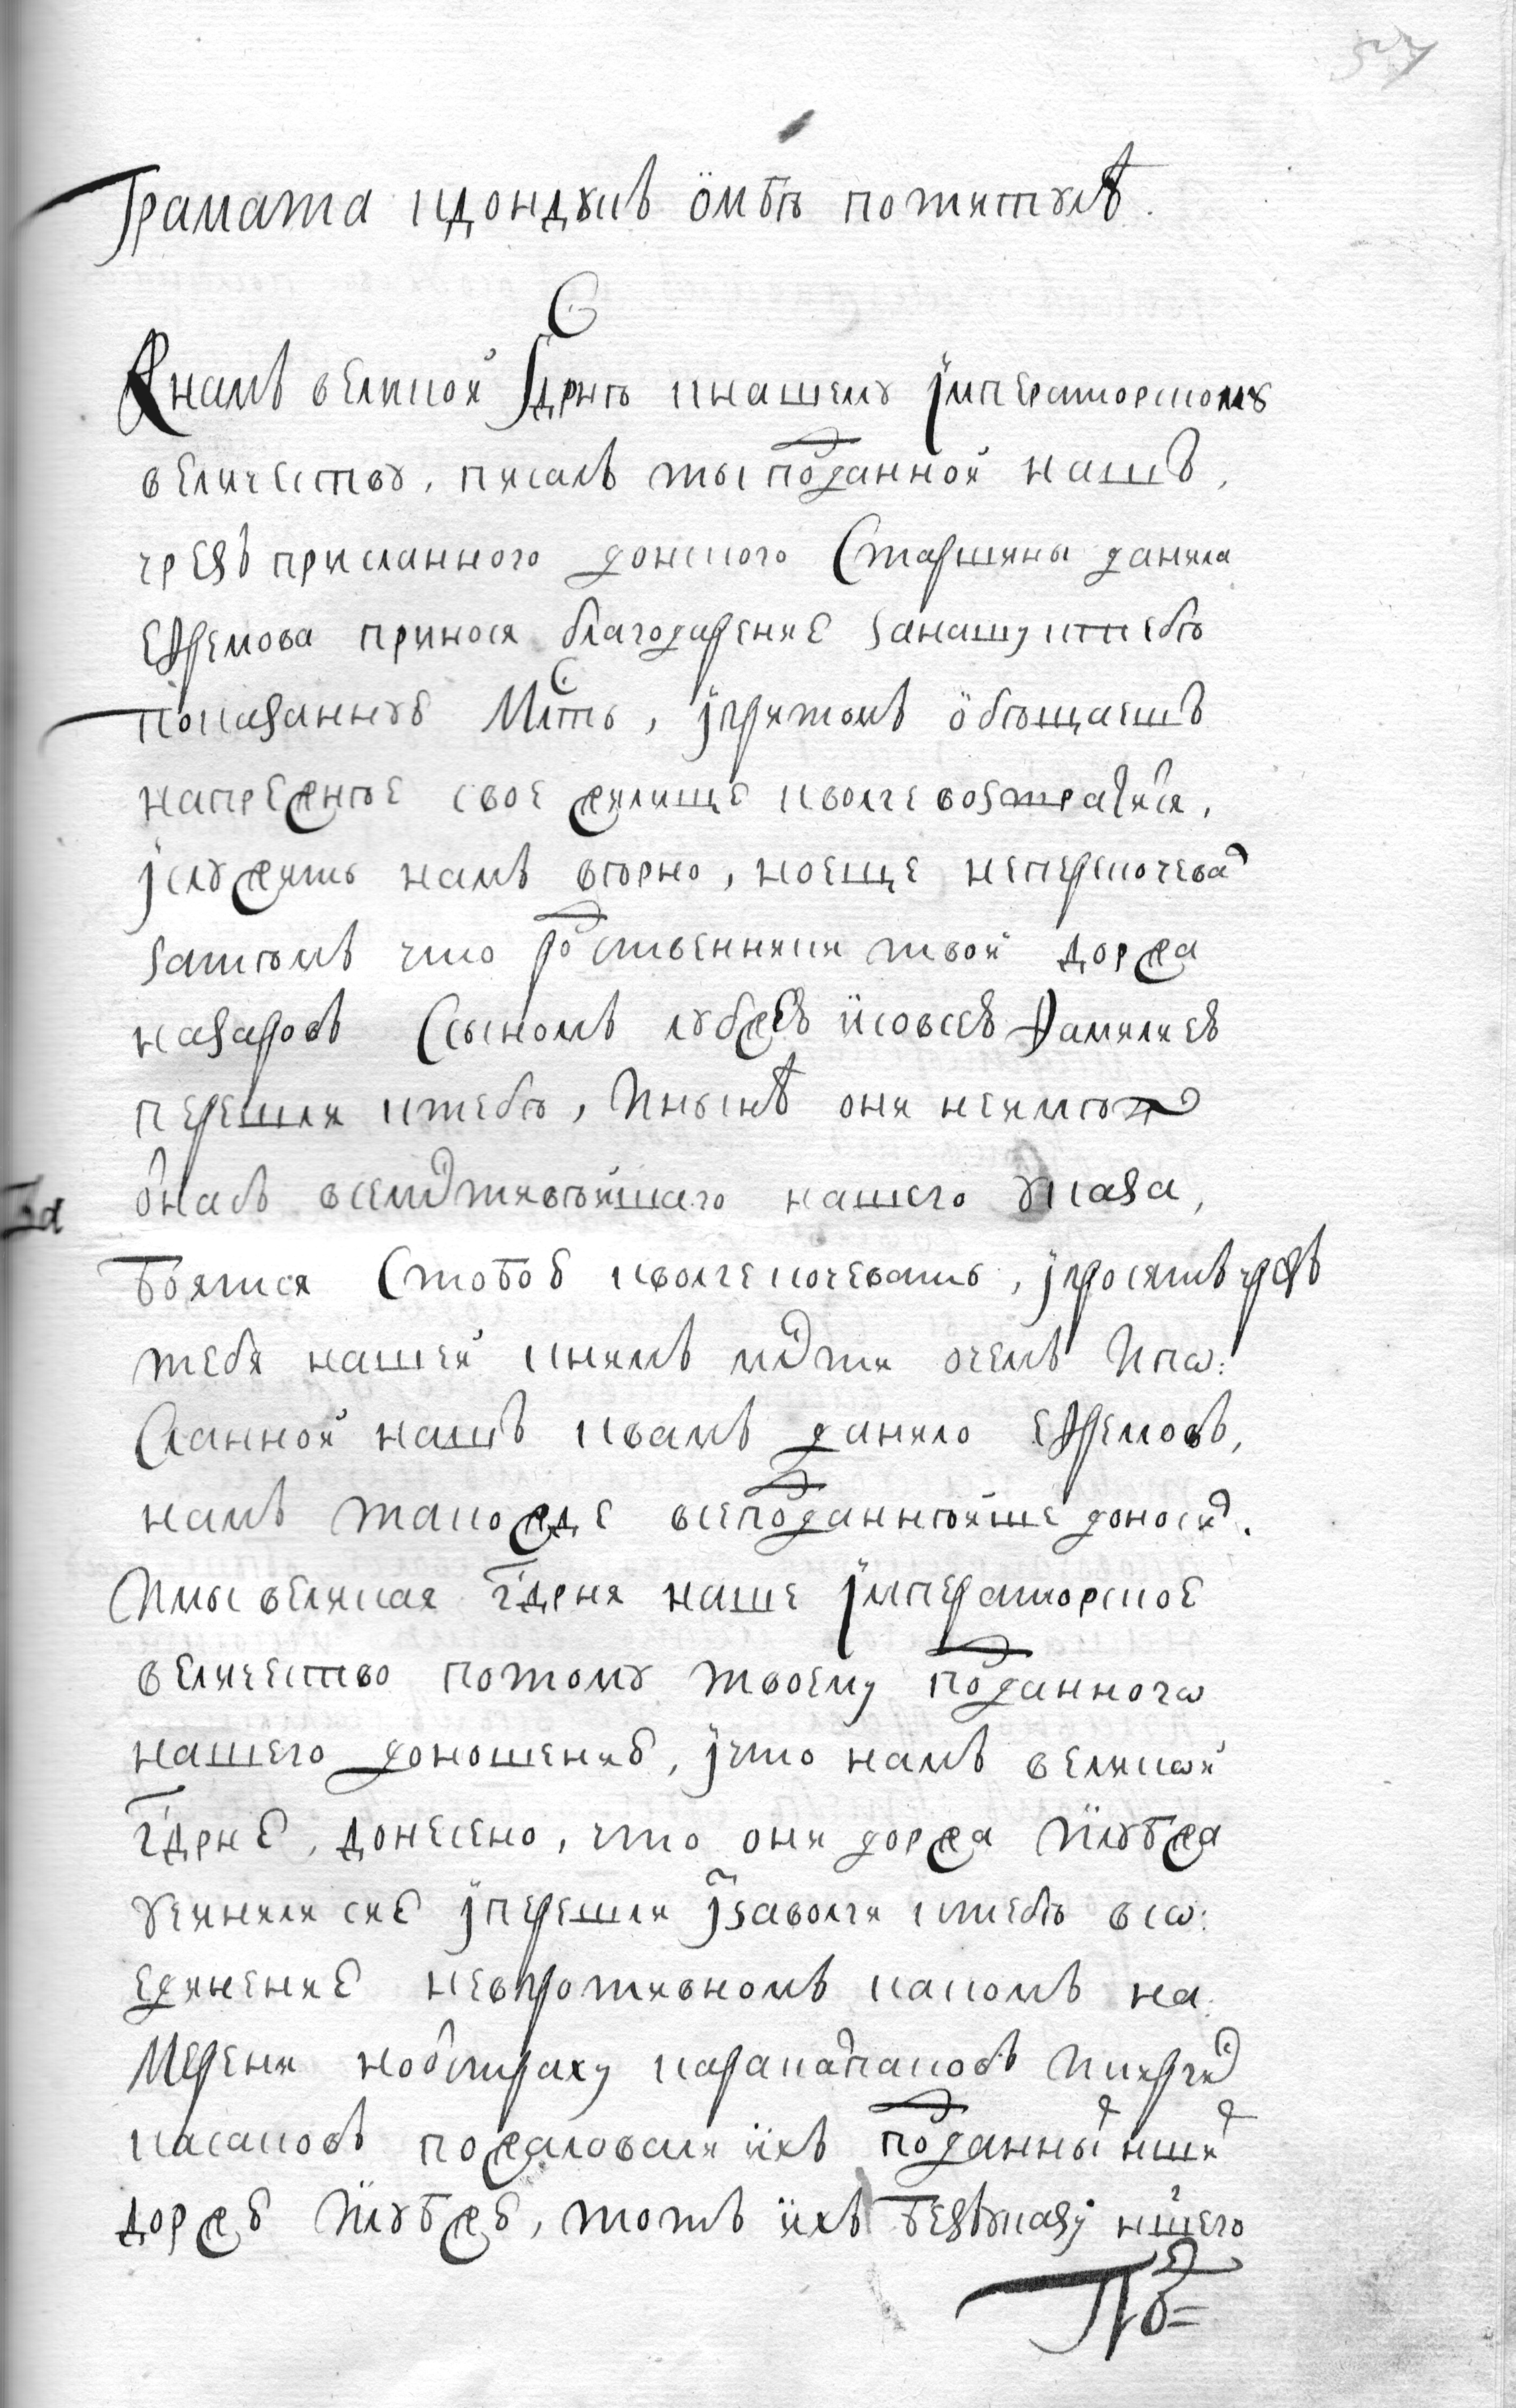 Грамата кдондукъ омбѣ потитулѣ.
Кнамъ великой Гдрнѣ инашему императорскому
величеству, писалъ ты подданной нашъ,
чрезъ присланного донского старшины данила
ефремова принося благодарение занашу ктебѣ
показанную Млсть, іпритомъ обѣщаешъ
напрежнѣе свое жилище кволге возтратися,
іслужить намъ вѣрно, ноеще неперекочевал
затѣмъ что родственники твои доржа
назаровъ сыномъ лубжеъ исовсеѣ фамилиеѣ
перешли ктебѣ, инынѣ они неимѣя
онасъ всемлтивѣйшаго нашего указа,
боятся стобою кволге кочевать, іпросятъ чрезъ
тебя нашей книмъ млти очемъ ипо:
сланной нашъ квамъ данило ефремовъ,
намъ такожде всеподданнѣйше доносил.
имы великая гдрня наше императорское
величество потому твоему подданного
нашего доношению, ічто намъ великой
гдрне, донесено, что они доржа илубжа
учинили сие іперешли ізаволги ктебѣ всо:
единение невпротивномъ какомъ на
мерени нобстраху каракалпаковъ икирги
касаковъ пожаловали ихъ подданных нших
доржу илубжу, тотъ ихъ безъуказу ншего
по